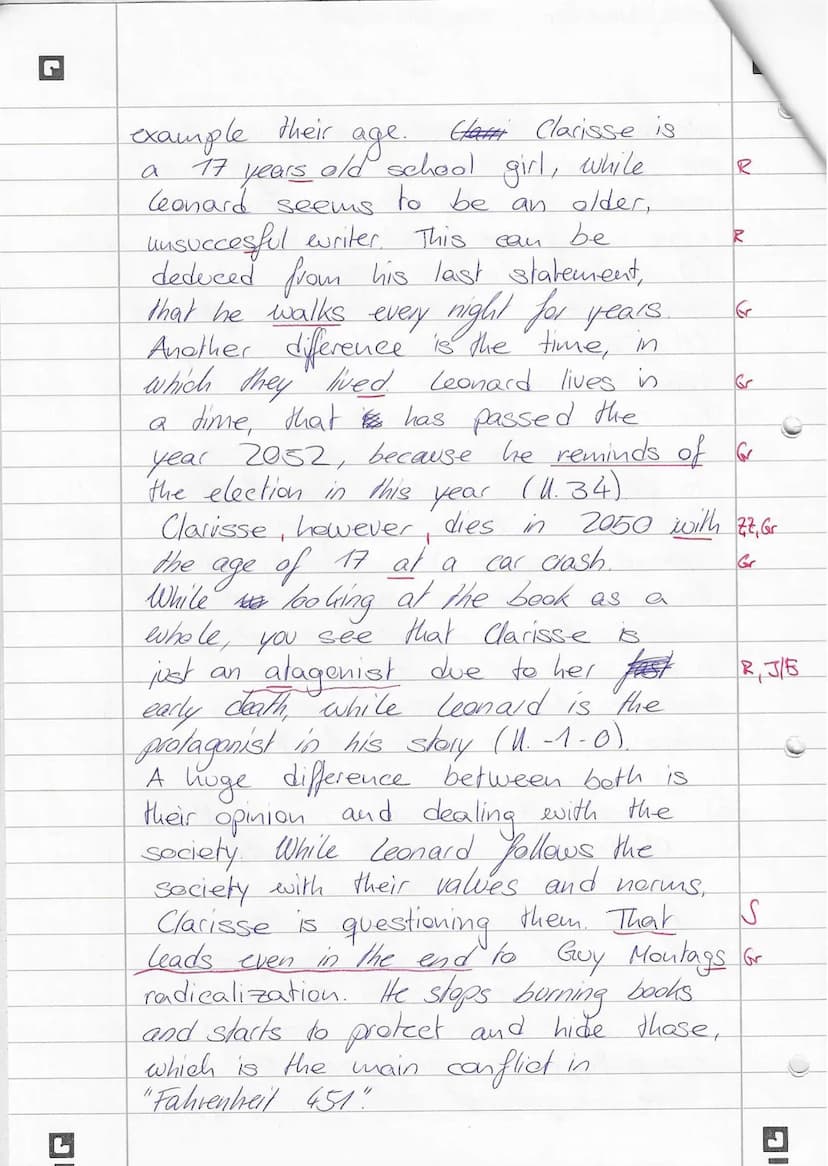 example their age. Clarisse is
a 17 years old school girl, while R
Leonard seems to be an older,
unsuccesful writer. This can be R
deduced from his last statement,
that he walks every night for years. Gr
Another difference is the time, in
which they lived. Leonard lives in Gr
a time, that has passed the
year 2052, because he reminds of Gr
the election in this year (ll. 34)
Clarisse, however, dies in 2050 with ZZ, Gr
the age of 17 at a car crash. Gr
While looking at the book as a
whole, you see that Clarisse is
just an atagonist due to her R,
early death, while Leonard is the
protagonist in his story (ll. -1-0).
A huge difference between both is
their opinion and dealing with the
society. While Leonard follows the
society with their values and norms,
Clarisse is questioning them. That S
leads even in the end to Guy Montags Gr
radicalization. He stops burning books
and starts to protect and hide those,
which is the main conflict in
"Fahrenheit 451".